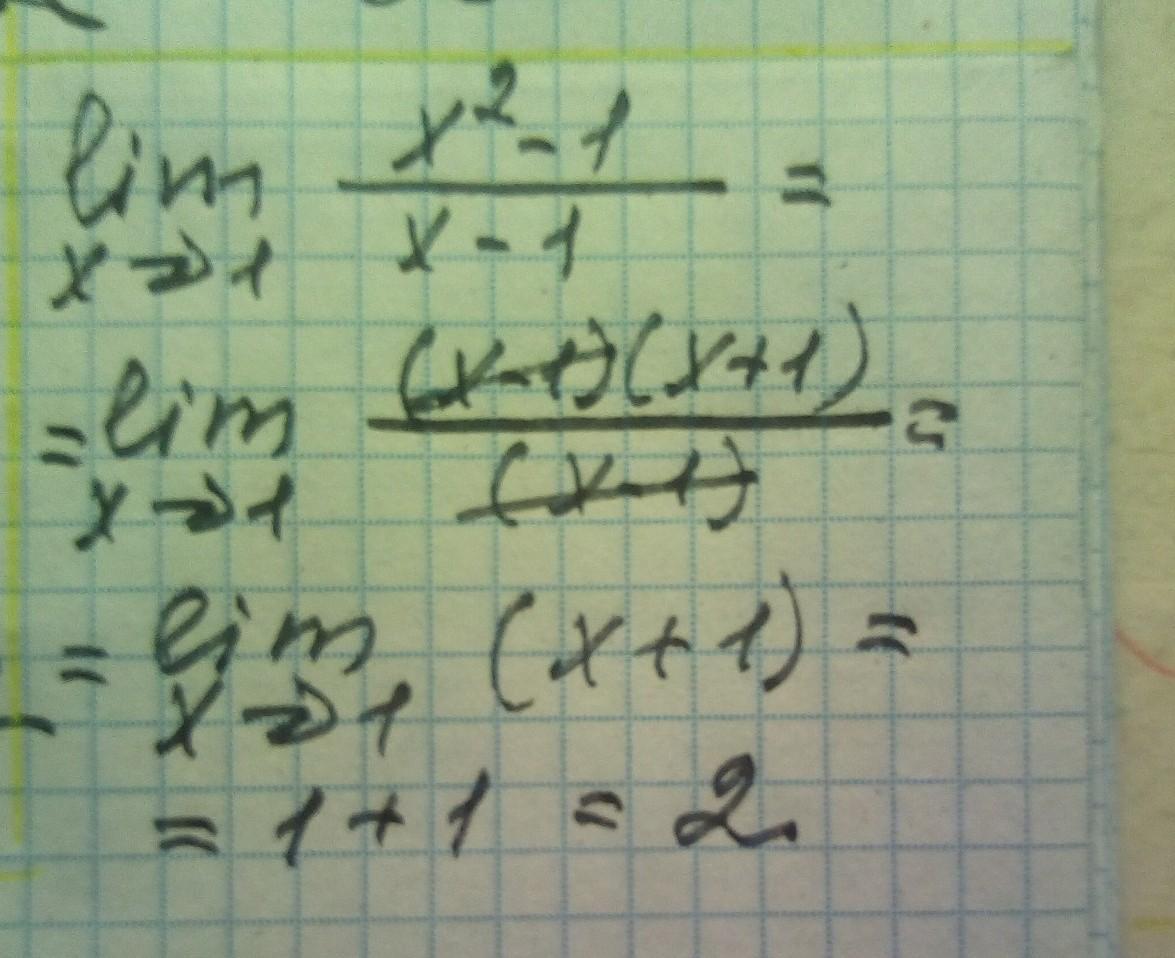 lim x→1 x²-1 / x-1 =
= lim x→1 (x-1)(x+1) / (x-1) =
= lim x→1 (x+1) =
= 1+1 = 2.